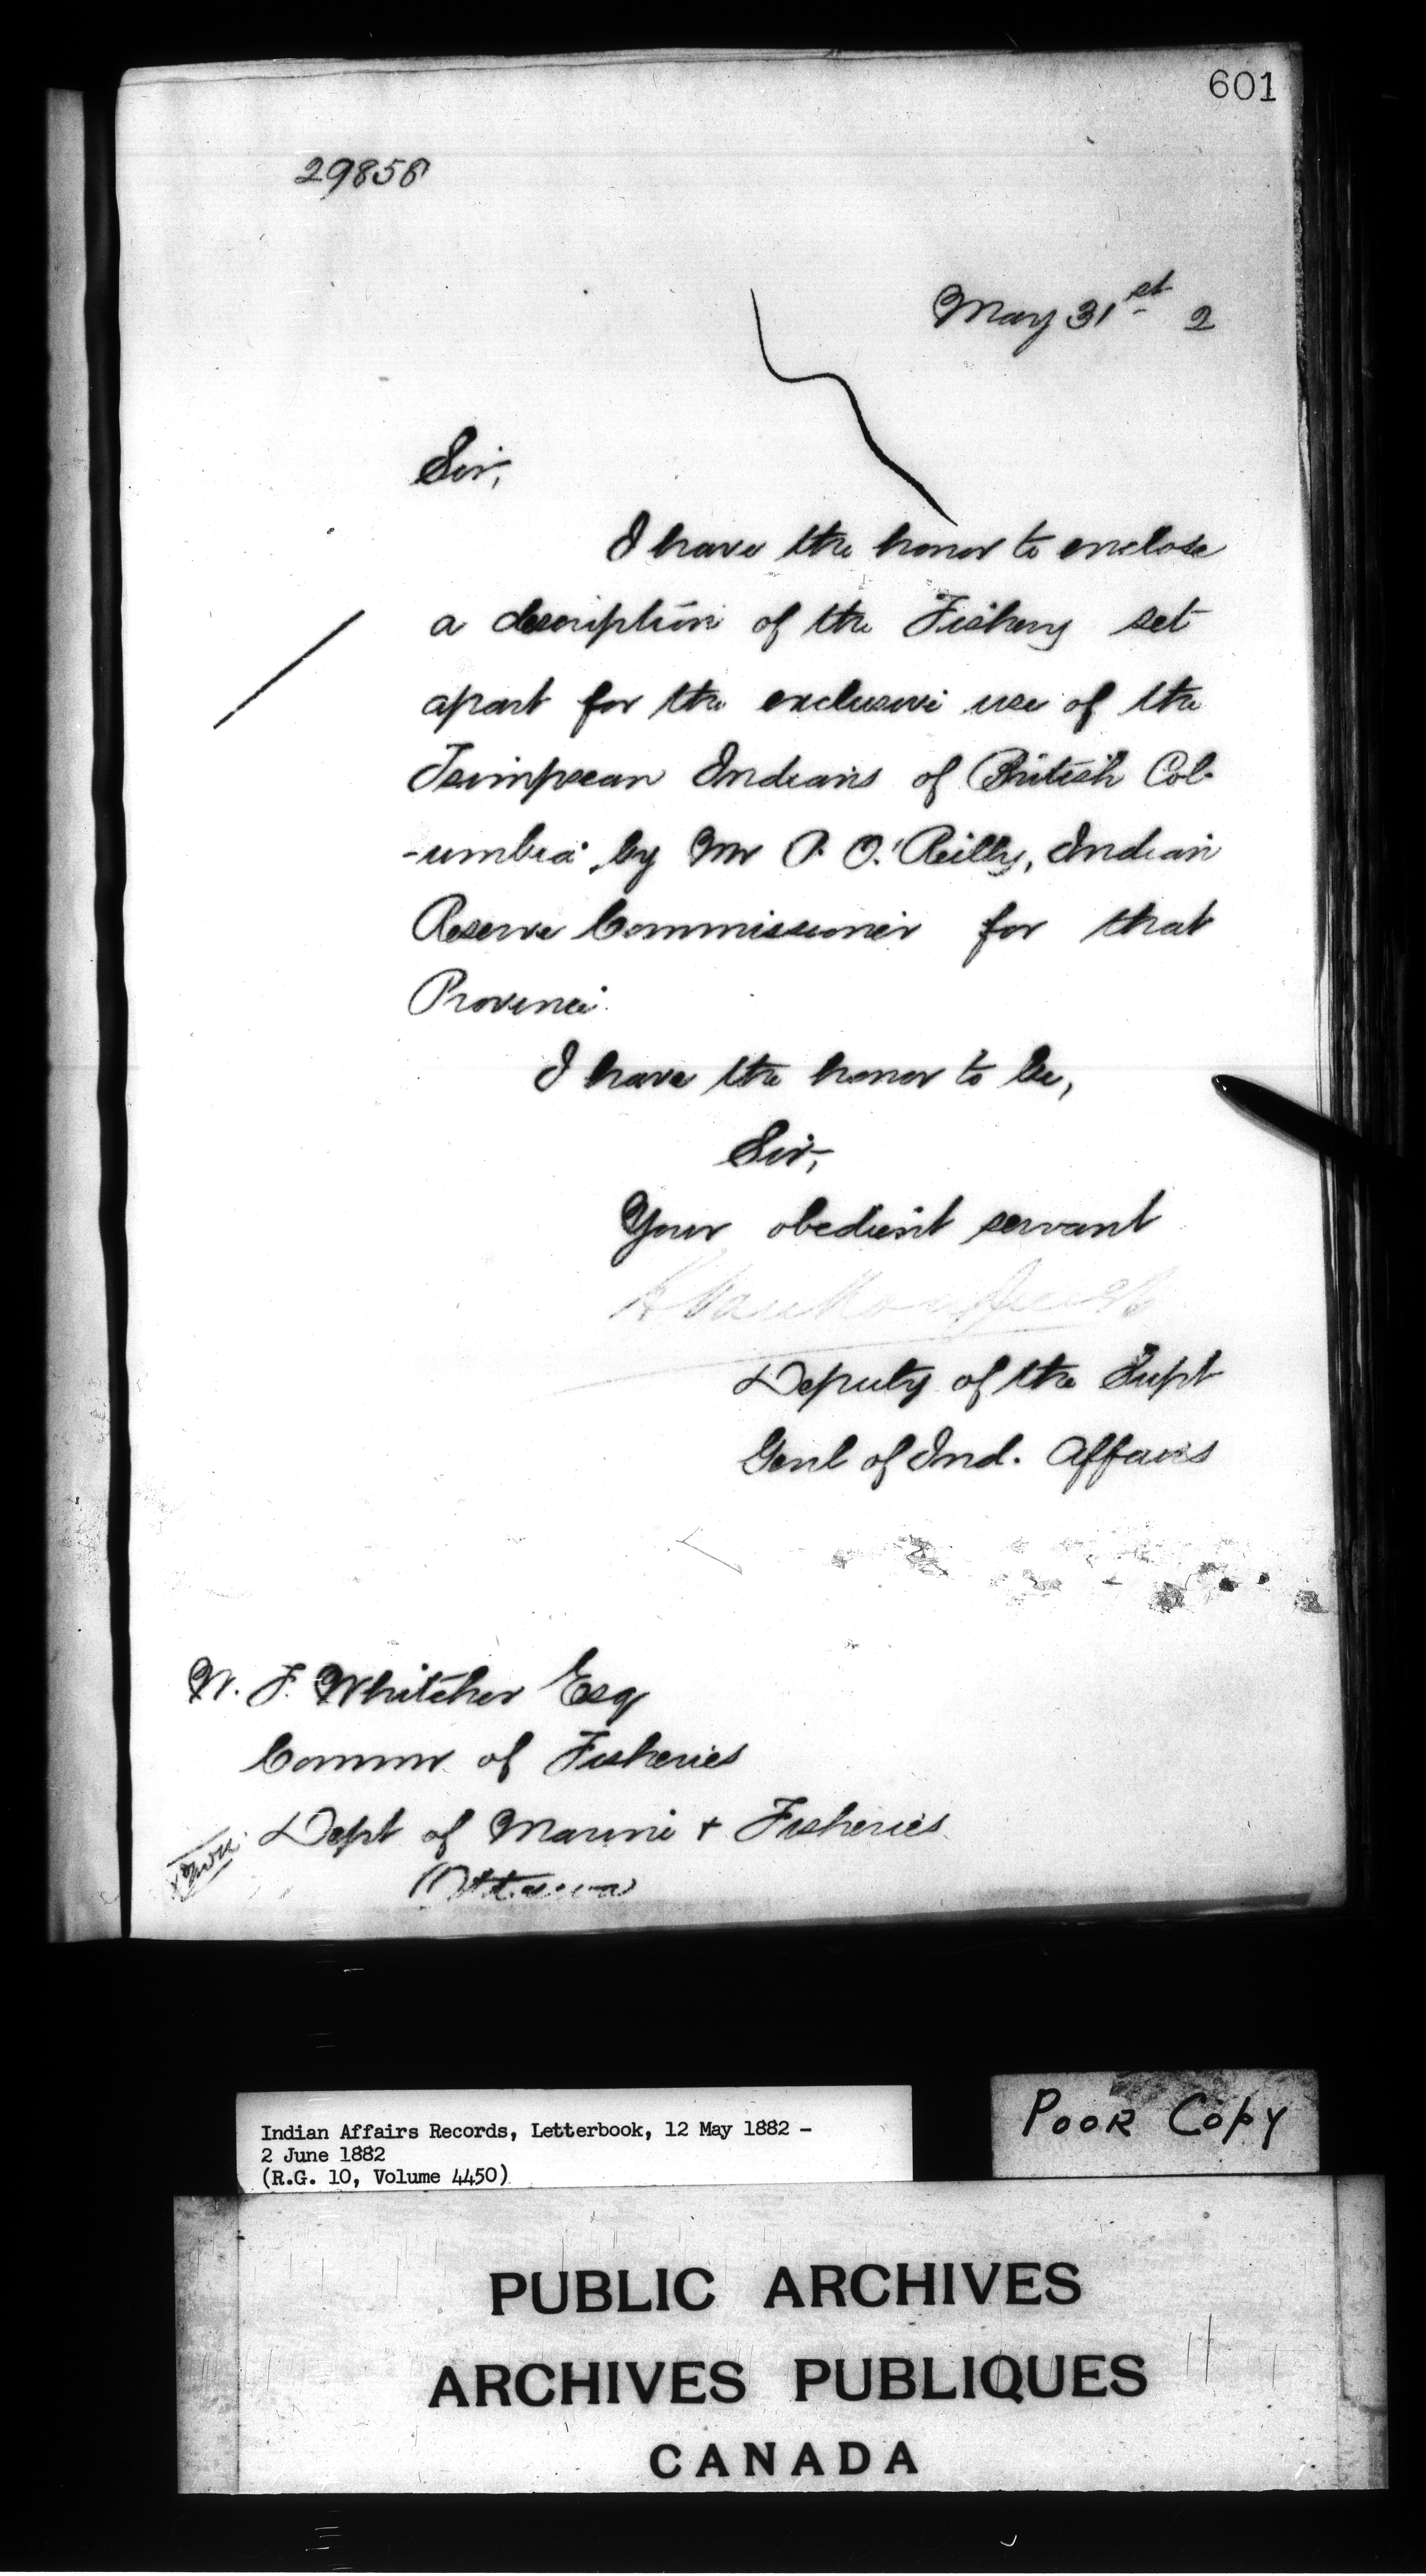 601
29858
May 31st 2
Sir,
I have the honor to enclose
a description of the Fishery set
apart for the exclusive use of the
Tsimpsean Indians of British Col-
-umbia by Mr P. O.'Reilly, Indian
Reserve Commissioner for that
Province.
I have the honor to be,
Sir,
Your obedient servant
Deputy of the Supt
Genl of Ind. Affairs
W. F. Whitcher Esq
Commr of Fisheries
Dept of Marine + Fisheries
Ottawa
Indian Affairs Records, Letterbook, 12 May 1882 –
2 June 1882
(R.G. 10, Volume 4450)
POOR COPY
PUBLIC ARCHIVES
ARCHIVES PUBLIQUES
CANADA